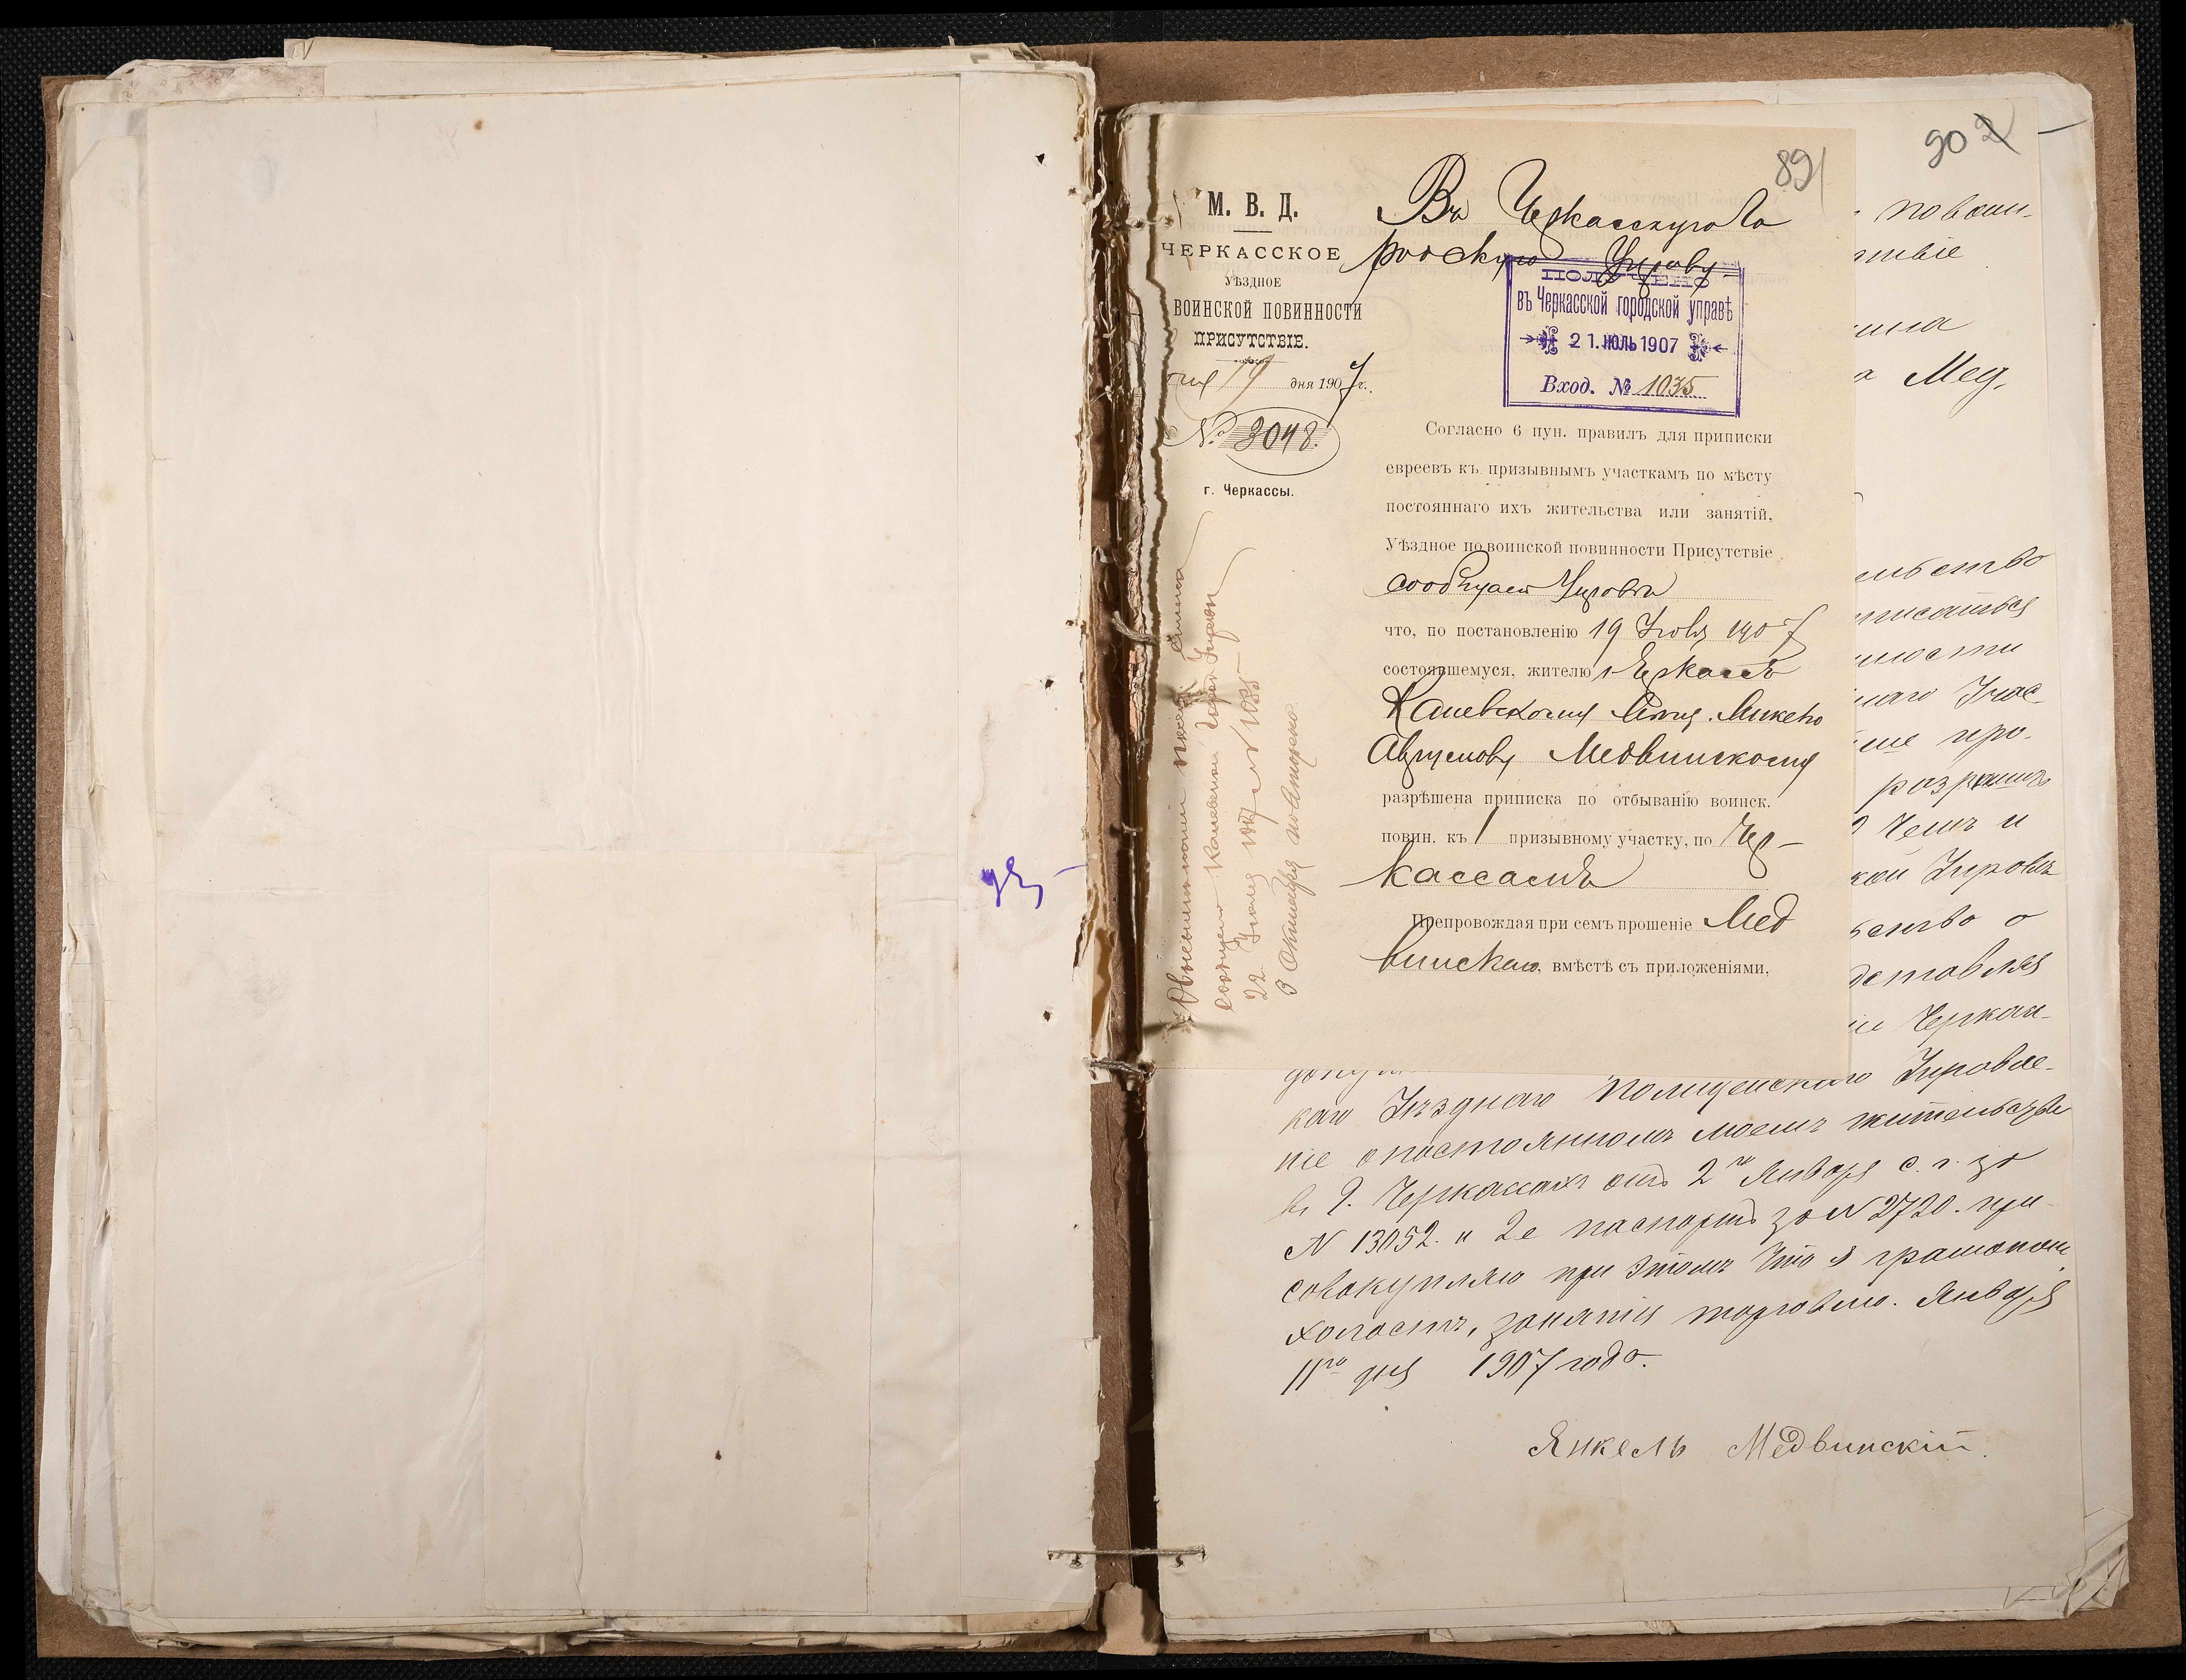 902
891
М. В. Д.
ЧЕРКАССКОЕ
УѢЗДНОЕ
ВОИНСКОЙ ПОВИННОСТИ
ПРИСУТСТВІЕ.
19 дня 1907 г.
№ 3048.
г. Черкассы.
Въ Черкасскую Го
родскую Управу.
ПОЛУЧЕНО
въ Черкасской городской управѣ
21. ИЮЛЬ 1907
Вход. № 1035
Согласно 6 пун. правилъ для приписки
евреевъ къ призывнымъ участкамъ по мѣсту
постояннаго ихъ жительства или занятій,
Уѣздное по воинской повинности Присутствіе
сообщаетъ Управѣ
что, по постановленію 19 1907
состоявшемуся, жителю г. Черкассъ
Каневскому Янкелю
Медвинскому
разрѣшена приписка по отбыванію воинск.
повин. къ 1 призывному участку, по Чер-
кассамъ
Препровождая при семъ прошеніе Мед
винскаго, вмѣстѣ съ приложеніями,
сообщено Каневской Город. Управѣ
22 Іюля 1907 г. № 1035
3 Октября повторено
повин-
ствіе
а Мед.
ельство
писаться
ности
наго Учас
про-
разрѣшить
чемъ и
кой Управѣ
о
дставляя
Черкас-
каго Уѣзднаго Полицейскаго Управле-
ніе о постоянномъ моемъ жительствѣ
въ г. Черкассахъ отъ 2го Января с. г. за
N 13052. и 2е паспортъ за N 2720. при-
совокупляю при этомъ что я грамотный
холостъ, занятія торговлею. Января
11го дня 1907 года.
Янкель Медвинскій.